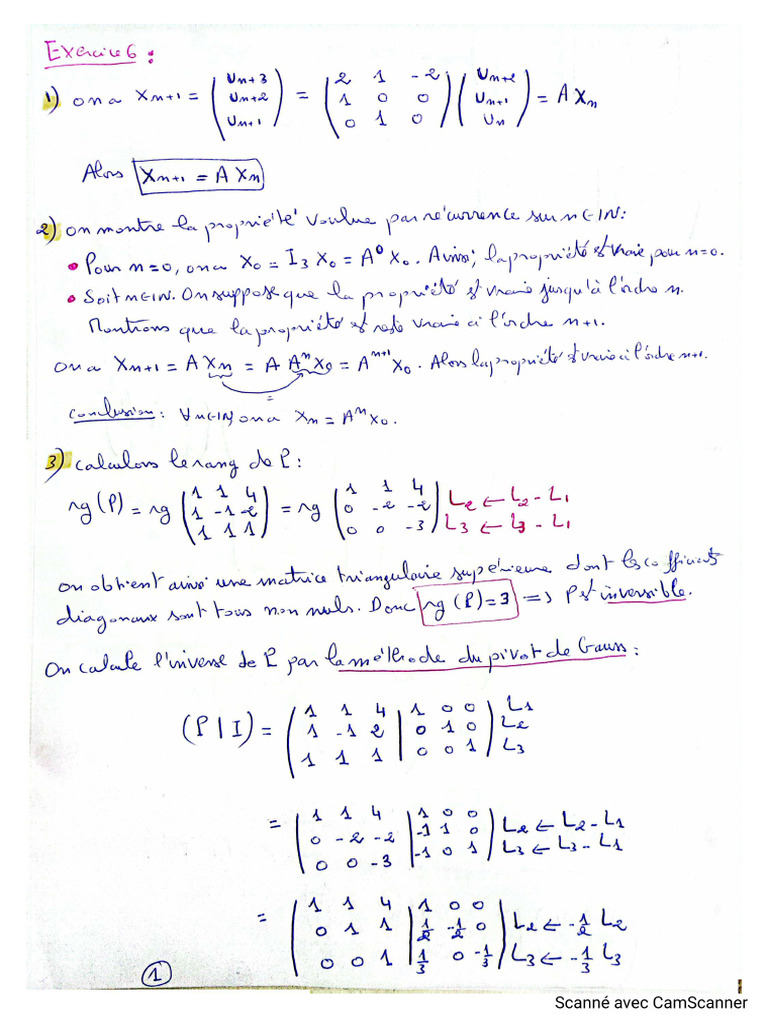 Exercice 6 :
1) on a Xn+1 = (Un+3 Un+2 Un+1) = (2 1 -2 1 0 0 0 1 0) (Un+2 Un+1 Un) = A Xn
Alors Xn+1 = A Xn
2) On montre la propriété voulue par récurrence sur n ∈ IN :
• Pour n=0, on a X0 = I3 X0 = A^0 X0. Ainsi, la propriété est vraie pour n=0.
• Soit n∈IN. On suppose que la propriété est vraie jusqu'à l'ordre n.
Montrons que la propriété est resté vraie à l'ordre n+1.
on a Xn+1 = A Xn = A A^n X0 = A^n+1 X0. Alors la propriété est vraie à l'ordre n+1.
=
Conclusion : ∀n∈IN on a Xn = A^n X0.
3) calculons le rang de P :
rg(P) = rg (1 1 4 1 -1 -2 1 1 1) = rg (1 1 4 0 -2 -2 0 0 -3) L2 ← L2 - L1 L3 ← L3 - L1
On obtient ainsi une matrice triangulaire supérieure dont les coefficients
diagonaux sont tous non nuls. Donc rg(P)=3 => P est inversible.
On calcule l'inverse de P par la méthode du pivot de Gauss :
(P | I) = (1 1 4 | 1 0 0 1 -1 2 | 0 1 0 1 1 1 | 0 0 1) L1 L2 L3
= (1 1 4 | 1 0 0 0 -2 -2 | -1 1 0 0 0 -3 | -1 0 1) L2 ← L2 - L1 L3 ← L3 - L1
= (1 1 4 | 1 0 0 0 1 1 | 1/2 -1/2 0 0 0 1 | 1/3 0 -1/3) L2 ← -1/2 L2 L3 ← -1/3 L3
1
Scanné avec CamScanner